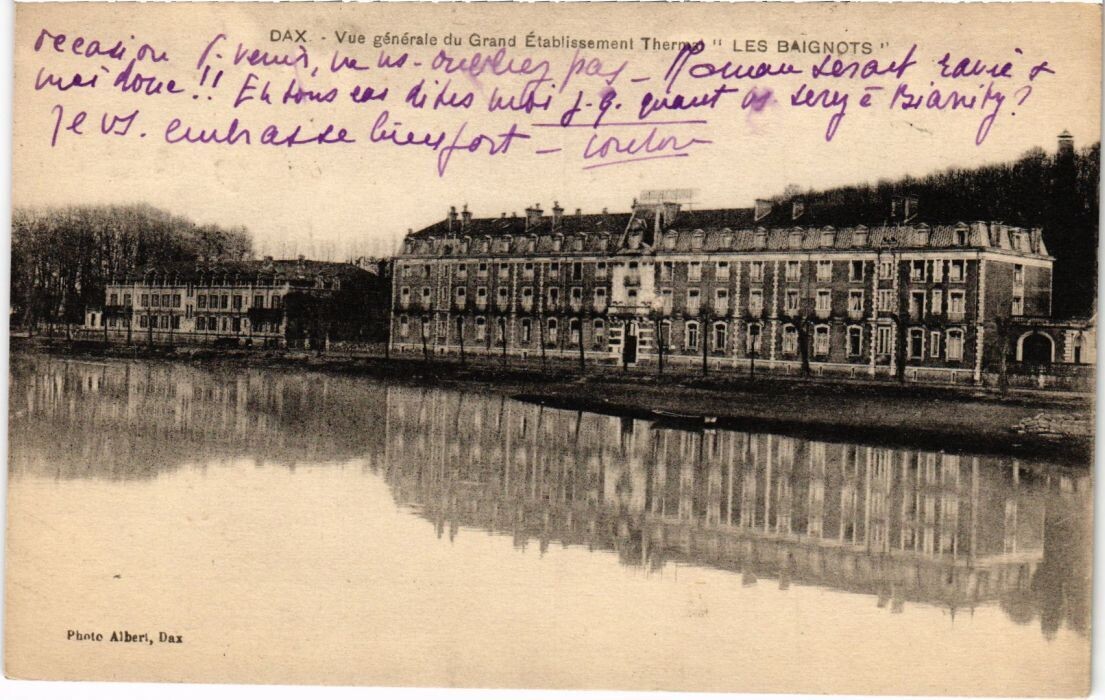 DAX. - Vue générale du Grand Établissement Thermal "LES BAIGNOTS"
occasion p. venir, ne ns. oubliez pas - Maman serait ravie &
moi donc !! En tous cas dites moi quant vs. serez à Biarritz ?
Je vs. embrasse bien fort -
Photo Albert, Dax